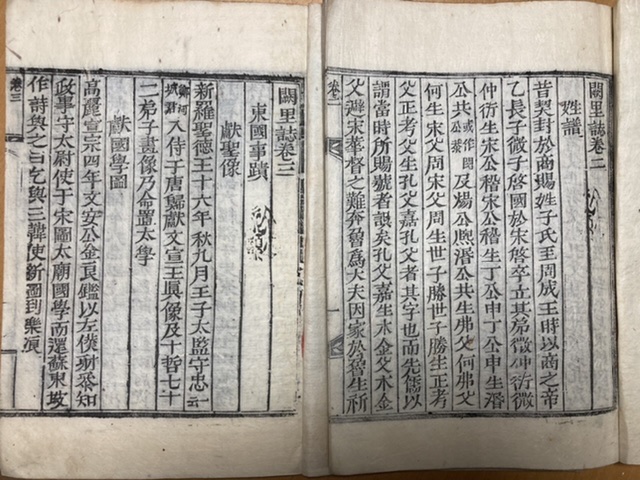 闕里誌卷二
姓譜
昔契封於商賜姓子氏至周成王時以商之帝
乙長子微子啓國於宋啓卒立其弟微仲衍微
仲衍生宋公稽宋公稽生丁公申丁公申生湣
公共或作閔公恭及煬公熙湣公共生弗父何弗父
何生宋父周宋父周生世子勝世子勝生正考
父正考父生孔父嘉孔父者其字也而先儒以
謂當時所賜號者誤矣孔父嘉生木金父木金
父避宋華督之難奔魯爲大夫因家於魯生祈
卷二
一
闕里誌卷三
東國事蹟
獻聖像
新羅聖德王十六年秋九月王子太監守忠一云
入侍于唐歸獻文宣王眞像及十哲七十
二弟子畫像乃命置太學
獻國學圖
高麗宣宗四年文安公金良鑑以左僕射參知
政事守太尉使于宋圖太廟國學而還蘇東坡
作詩與之曰乞與三韓使新圖到樂浪
卷三